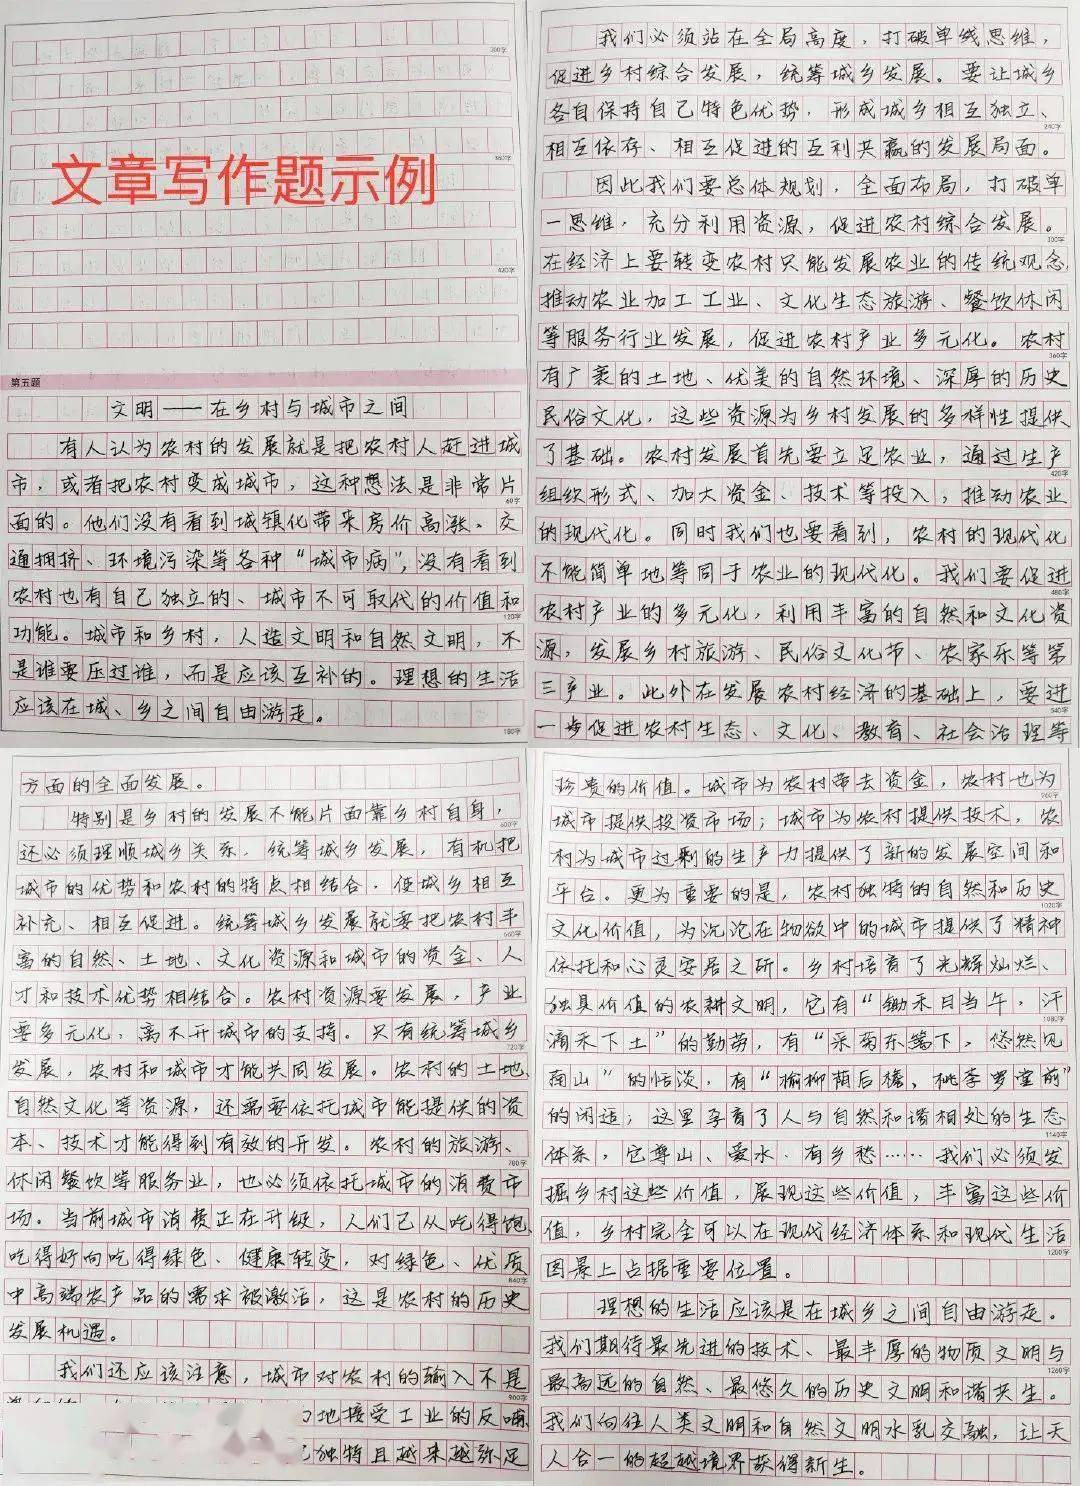 300字
360字
文章写作题示例
420字
第五题
文明——在乡村与城市之间
有人认为农村的发展就是把农村人赶进城
市，或者把农村变成城市，这种想法是非常片
60字
面的。他们没有看到城镇化带来房价高涨、交
通拥挤、环境污染等各种“城市病”，没有看到
农村也有自己独立的、城市不可取代的价值和
120字
功能。城市和乡村，人造文明和自然文明，不
是谁要压过谁，而是应该互补的。理想的生活
应该在城、乡之间自由游走。
180字
我们必须站在全局高度，打破单线思维，
促进乡村综合发展，统筹城乡发展。要让城乡
各自保持自己特色优势，形成城乡相互独立、
240字
相互依存、相互促进的互利共赢的发展局面。
因此我们要总体规划，全面布局，打破单
一思维，充分利用资源，促进农村综合发展。
300字
在经济上要转变农村只能发展农业的传统观念，
推动农业加工工业、文化生态旅游、餐饮休闲
等服务行业发展，促进农村产业多元化。农村
360字
有广袤的土地、优美的自然环境、深厚的历史
民俗文化，这些资源为乡村发展的多样性提供
了基础。农村发展首先要立足农业，通过生产
420字
组织形式、加大资金、技术等投入，推动农业
的现代化。同时我们也要看到，农村的现代化
不能简单地等同于农业的现代化。我们要促进
480字
农村产业的多元化，利用丰富的自然和文化资
源，发展乡村旅游、民俗文化节、农家乐等第
三产业。此外在发展农村经济的基础上，要进
540字
一步促进农村生态、文化、教育、社会治理等
方面的全面发展。
特别是乡村的发展不能片面靠乡村自身，
600字
还必须理顺城乡关系，统筹城乡发展，有机把
城市的优势和农村的特点相结合，使城乡相互
补充、相互促进。统筹城乡发展就要把农村丰
660字
富的自然、土地、文化资源和城市的资金、人
才和技术优势相结合。农村资源要发展，产业
要多元化，离不开城市的支持。只有统筹城乡
720字
发展，农村和城市才能共同发展。农村的土地、
自然文化等资源，还需要依托城市能提供的资
本、技术才能得到有效的开发。农村的旅游、
780字
休闲餐饮等服务业，也必须依托城市的消费市
场。当前城市消费正在升级，人们已从吃得饱、
吃得好向吃得绿色、健康转变，对绿色、优质
840字
中高端农产品的需求被激活，这是农村的历史
发展机遇。
我们还应该注意，城市对农村的输入不是
900字
地接受工业的反哺
独特且越来越弥足
珍贵的价值。城市为农村带去资金，农村也为
960字
城市提供投资市场；城市为农村提供技术，农
村为城市过剩的生产力提供了新的发展空间和
平台。更为重要的是，农村独特的自然和历史
1020字
文化价值，为沉沦在物欲中的城市提供了精神
依托和心灵安居之所。乡村培育了光辉灿烂、
独具价值的农耕文明，它有“锄禾日当午，汗
1080字
滴禾下土”的勤劳，有“采菊东篱下，悠然见
南山”的恬淡，有“榆柳荫后檐，桃李罗堂前”
的闲适；这里孕育了人与自然和谐相处的生态
1140字
体系，它尊山、爱水、有乡愁……我们必须发
掘乡村这些价值，展现这些价值，丰富这些价
值，乡村完全可以在现代经济体系和现代生活
1200字
图景上占据重要位置。
理想的生活应该是在城乡之间自由游走。
我们期待最先进的技术、最丰厚的物质文明与
1260字
最高远的自然、最悠久的历史文明和谐共生。
我们向往人类文明和自然文明水乳交融，让天
人合一的超越境界获得新生。